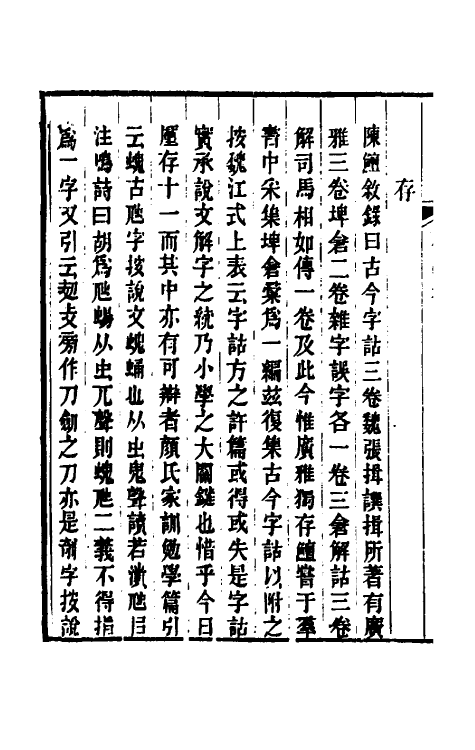 存
陳鱣敘錄曰古今字詁三卷魏張揖譔揖所著有廣
雅三卷埤倉二卷雜字誤字各一卷三倉解詁三卷
解司馬相如傳一卷及此今惟廣雅獨存鱣嘗于羣
書中采集埤倉彙爲一編茲復集古今字詁以附之
按魏江式上表云字詁方之許篇或得或失是字詁
實承說文解字之統乃小學之大關鍵也惜乎今日
厪存十一而其中亦有可辯者顏氏家訓勉學篇引
云螝古虺字按說文螝蛹也从虫鬼聲讀若潰虺㠯
注鳴詩曰胡爲虺蜴从虫兀聲則螝虺二義不得指
爲一字又引云㓞支旁作刀劒之刀亦是剬字按說